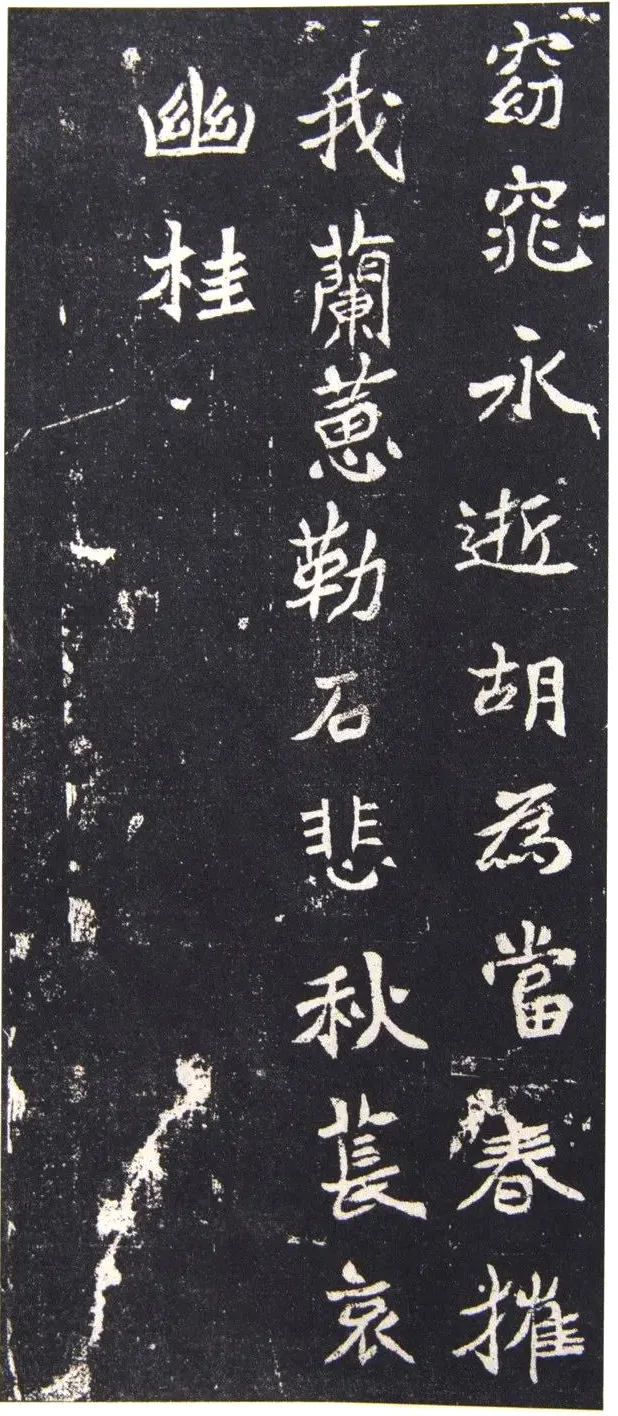 窈窕永逝胡為當春摧
我蘭蕙勒石悲秋萇哀
幽桂